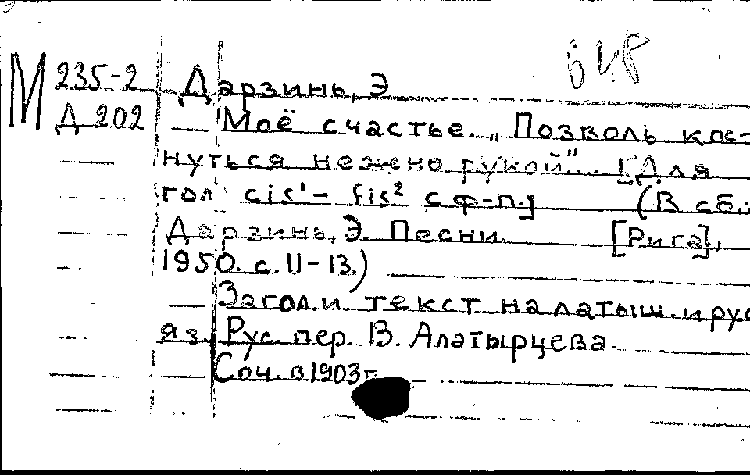 М 235-2 Дарзинь, Э
Д 202 Моё счастье. „Позволь кос-
нуться нежно рукой“. [Для
гол cis¹- fis² с ф-п.] (В сб.:
Дарзинь, Э. Песни. [Рига],
1950. с. 11-13.)
Загол. и текст на латыш. и рус
яз. Рус. пер. В. Алатырцева
Соч. в 1903 г.